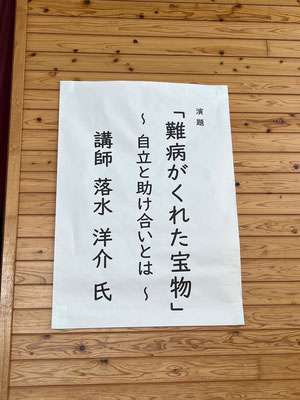 演題
「難病がくれた宝物」
～ 自立と助け合いとは ～
講師 落水 洋介 氏